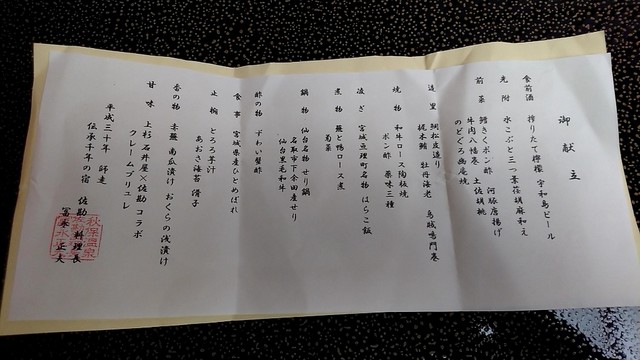 御献立
食前酒 搾りたて檸檬 宇和島ビール
先附 水こぶと三つ葉荏胡麻和え
前菜 鱈きくポン酢 河豚唐揚げ
牛肉八幡巻 土佐胡桃
のどぐろ幽庵焼
造里 鯛松皮造り 烏賊鳴門巻
梶木鮪 牡丹海老
焼物 和牛ロース陶板焼
ポン酢 薬味三種
凌ぎ 宮城亘理町名物 はらこ飯
煮物 蕪と鴨ロース煮
菊菜
鍋物 仙台名物 せり鍋
名取市下余田産せり
仙台黒毛和牛
酢の物 ずわい蟹酢
食事 宮城県産ひとめぼれ
止椀 とろろ芋汁
あおさ海苔 滑子
香の物 赤蕪 南瓜漬け おくらの浅漬け
甘味 上杉石井屋×佐勘コラボ
クレームブリュレ
平成三十年 師走
伝承千年の宿 佐勘 料理長
冨永 正夫
秋保温泉